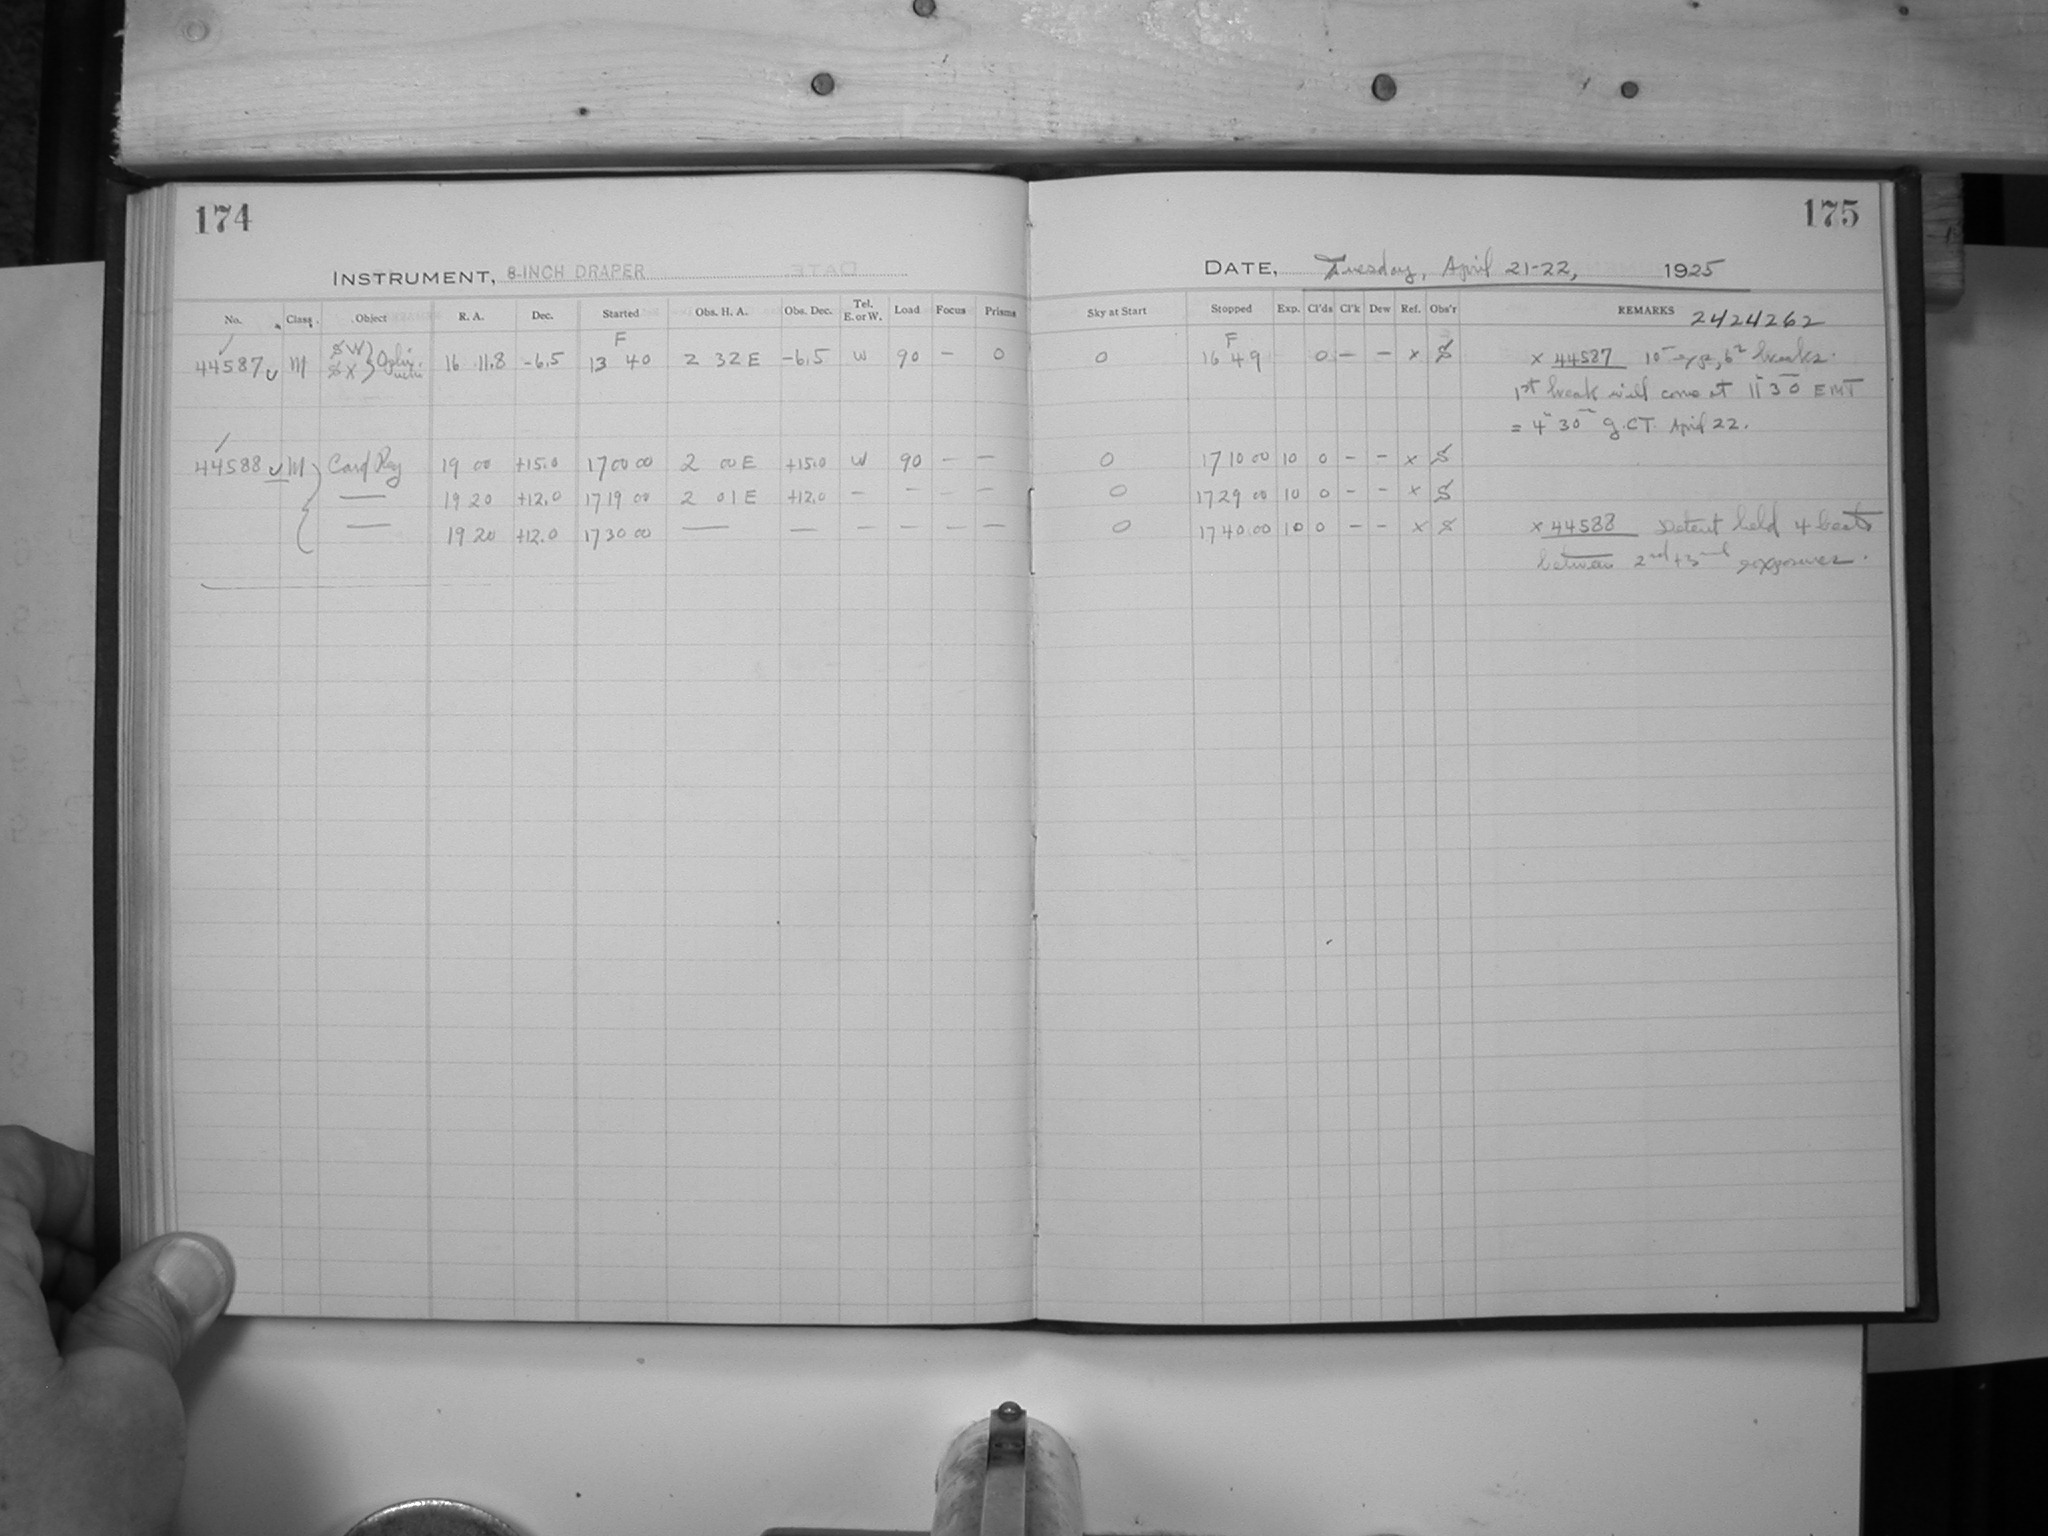 174
INSTRUMENT, 8-INCH DRAPER
No. Class. Object R. A. Dec. Started Obs. H. A. Obs. Dec. Tel. E. or W. Load Focus Prisms
F
44587 M SW SX } Ophiuchi 16 11.8 -6.5 13 40 2 32 E -6.5 W 90 – 0
44588 M Card Reg 19 00 +15.0 17 00 00 2 00 E +15.0 W 90 – –
— 19 20 +12.0 17 19 00 2 01 E +12.0 – – – –
— 19 20 +12.0 17 30 00 — — – – – –
175
DATE, Tuesday, April 21-22, 1925
Sky at Start Stopped Exp. Cl'ds Cl'k Dew Ref. Obs'r REMARKS 2424262
F
0 16 49 0 – – x S x 44587 10m exp, breaks.
1st break will come at 11h 30m EMT
= 4h 30m G.C.T. April 22.
0 17 10 00 10 0 – – x S
0 17 29 00 10 0 – – x S
0 17 40 00 10 0 – – x S x 44588 Detent held 4 beats
between 2nd + 3rd exposures.